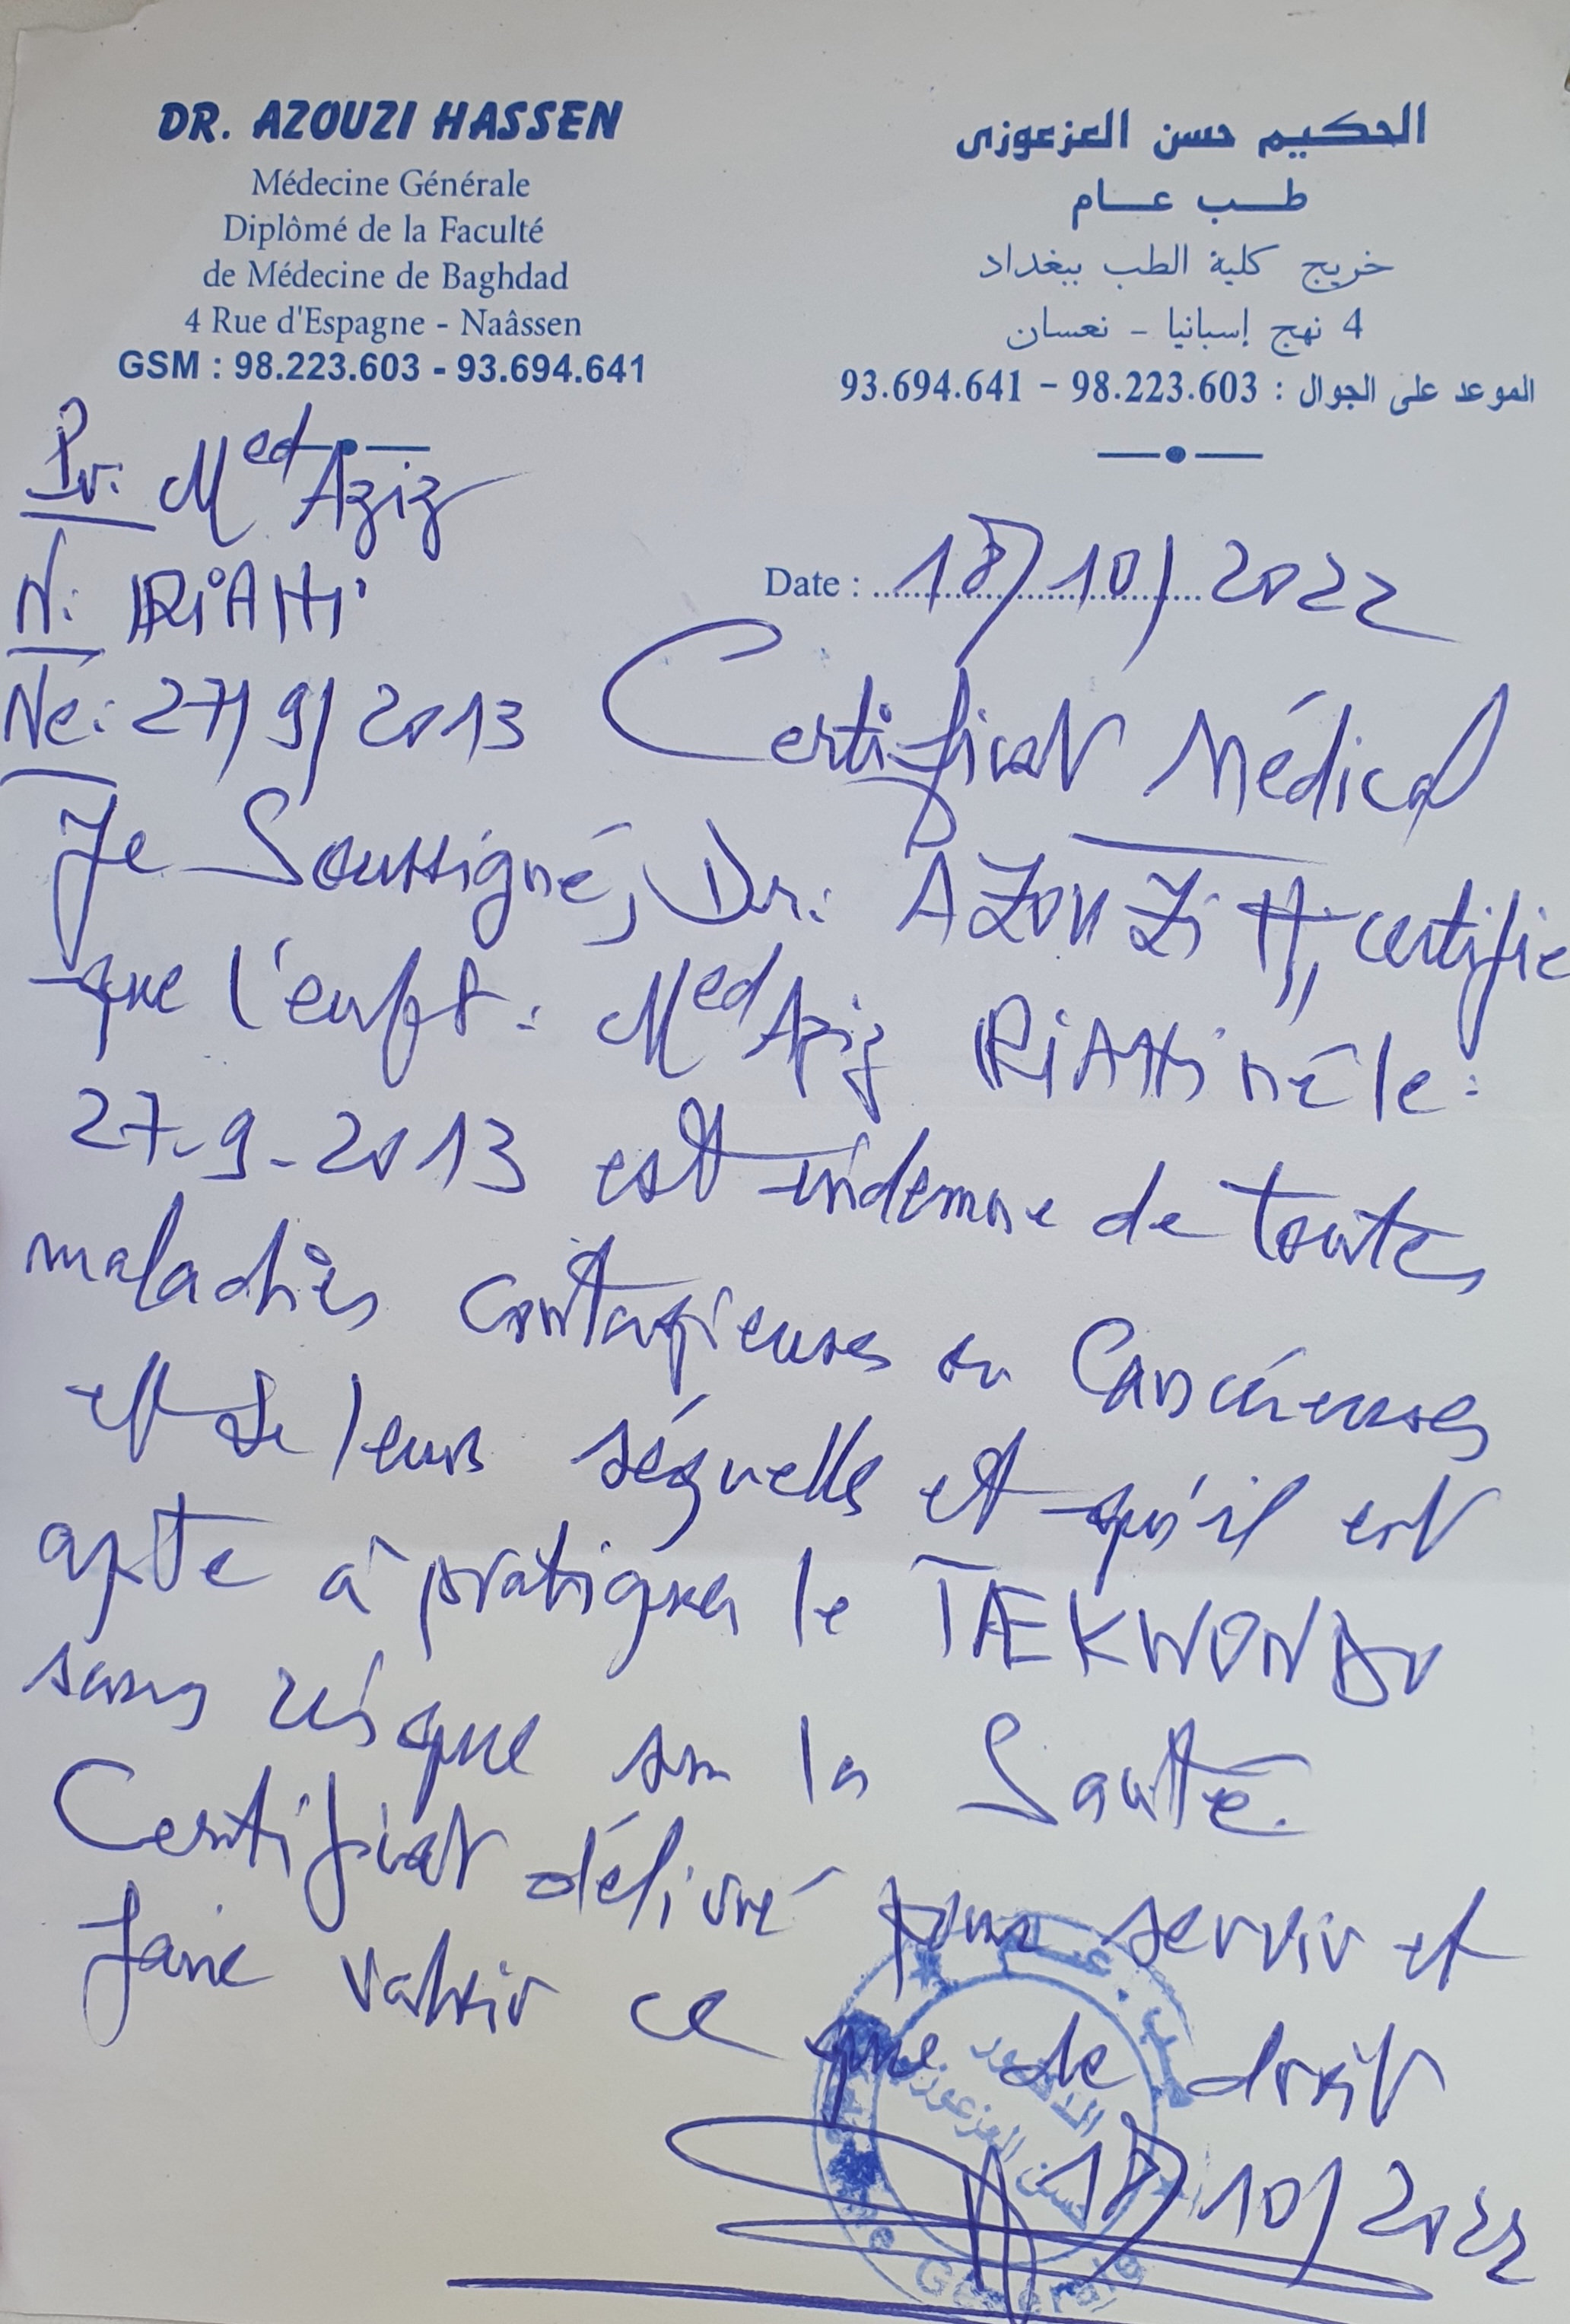 DR. AZOUZI HASSEN
Médecine Générale
Diplômé de la Faculté
de Médecine de Baghdad
4 Rue d'Espagne - Naâssen
GSM : 98.223.603 - 93.694.641
الحكيم حسن العزعوزي
طب عام
خريج كلية الطب ببغداد
4 نهج إسبانيا - نعسان
الموعد على الجوال : 98.223.603 - 93.694.641
Pr: Med Aziz
N: RiAHi
Né: 27/9/2013
Date : 18/10/2022
Certificat Médical
Je Soussigné, Dr: AZOUZi H, certifie
que l'enft: Med Aziz RiAHi né le:
27-9-2013 est indemne de toutes
maladies contagieuses ou Cancéreuses
et de leurs séquelles et qu'il est
apte à pratiquer le TAEKWONDO
sans risque sur la Santé.
Certificat délivré pour servir et
faire valoir ce que de droit
18/10/2022
طب عام
الدكتور
حسن العزعوزي
Générale